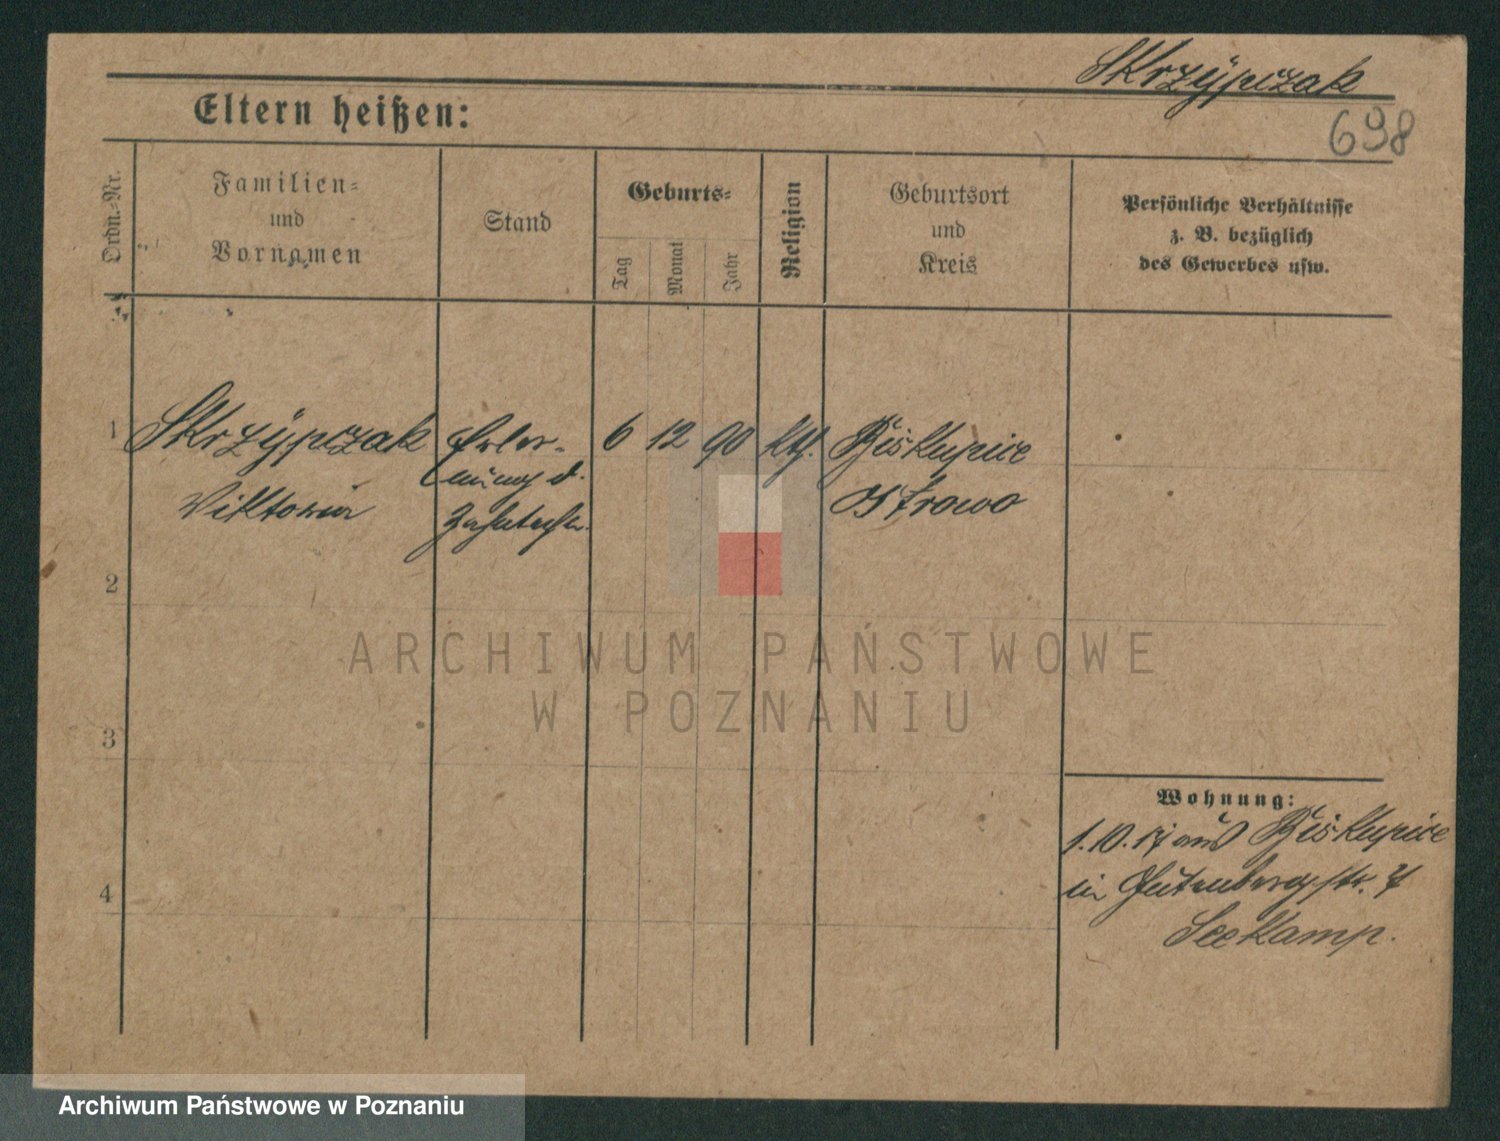 Skrzypczak
698
Eltern heißen:
Ordn.-Nr.
Familien-
und
Vornamen
Stand
Geburts-
Tag
Monat
Jahr
Religion
Geburtsort
und
Kreis
Persönliche Verhältnisse
z. B. bezüglich
des Gewerbes usw.
1 Skrzypczak Erler- 6 12 90 kth. Biskupice
nung d.
Viktoria Zahntechn. Ostrowo
2
ARCHIWUM PAŃSTWOWE
W POZNANIU
3
Wohnung:
1.10.17 aus Biskupice
in Gutenbergstr. 7
4
Seekamp.
Archiwum Państwowe w Poznaniu